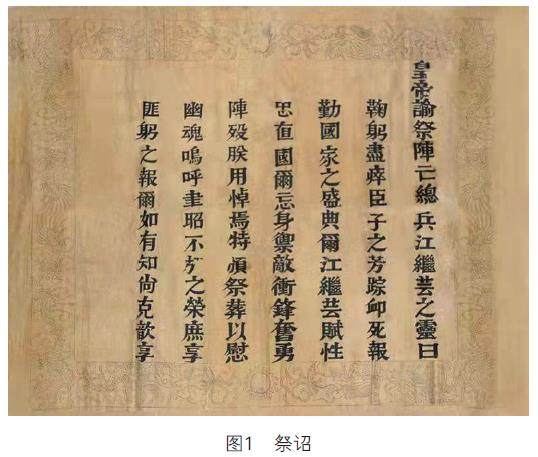 皇帝諭祭陣亡總兵江繼芸之靈曰
鞠躬盡瘁臣子之芳踪卹死報
勤國家之盛典爾江繼芸賦性
忠直國爾忘身禦敵衝鋒奮勇
陣歿朕用悼焉特頒祭葬以慰
幽魂嗚呼聿昭不朽之榮庶享
匪躬之報爾如有知尚克歆享
图1 祭诏